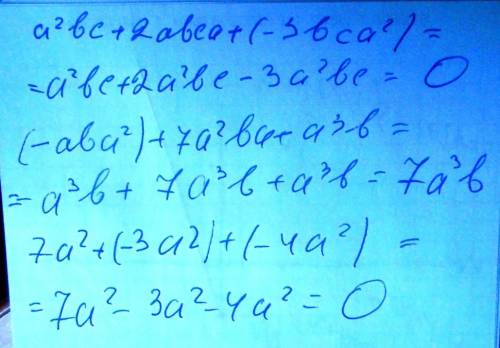 a²bc+2abca+(-3bca²)=
=a²bc+2a²bc-3a²bc=0
(-aba²)+7a²ba+a³b=
=-a³b+7a³b+a³b=7a³b
7a²+(-3a2)+(-4a²)=
=7a²-3a²-4a²=0